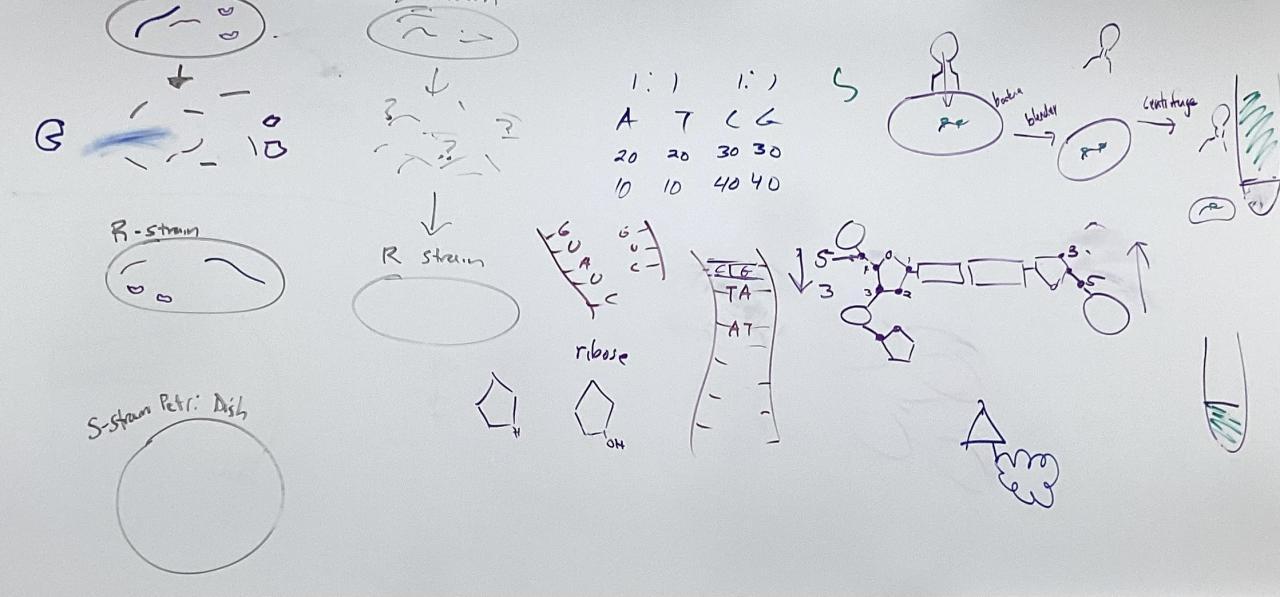 1:1 1:1
A T C G
20 20 30 30
10 10 40 40
S
blender
centrifuge
R-strain
R strain
G
U
A
U
C
G
U
C
C G
TA
AT
5
3
1
2
3
3
5
ribose
H
OH
S-strain Petri Dish
?
?
?